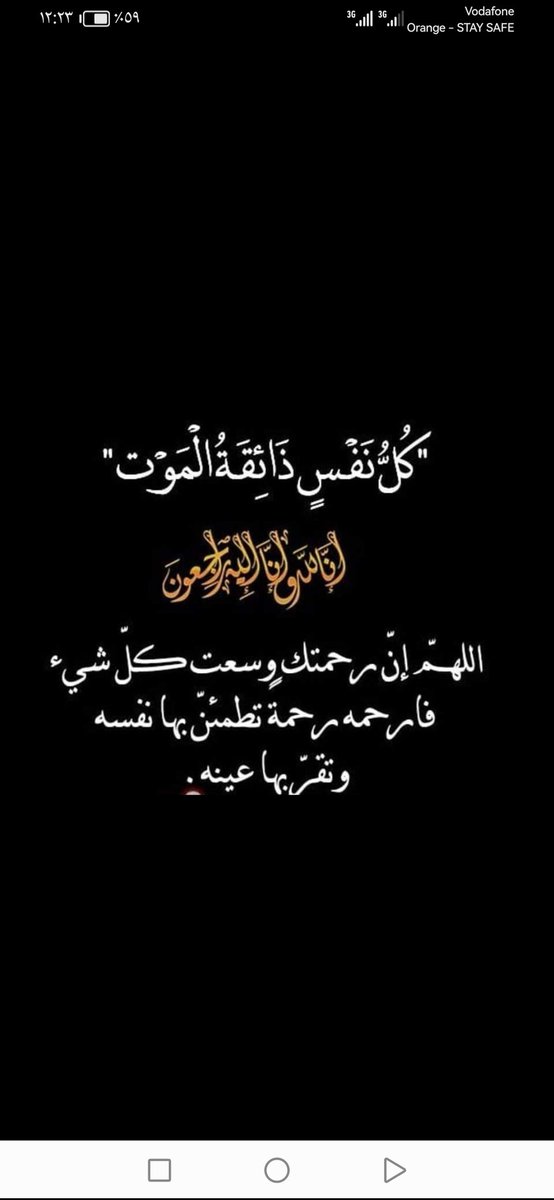 ١٢:٢٣ ٪٥٩ 3G 3G Vodafone
Orange – STAY SAFE
"كُلُّ نَفْسٍ ذَائِقَةُ الْمَوْت"
إنّا لله وإنّا إليه راجعون
اللهمّ إنّ رحمتك وسعت كلّ شيء
فارحمه رحمةً تطمئنّ بها نفسه
وتقرّ بها عينه .